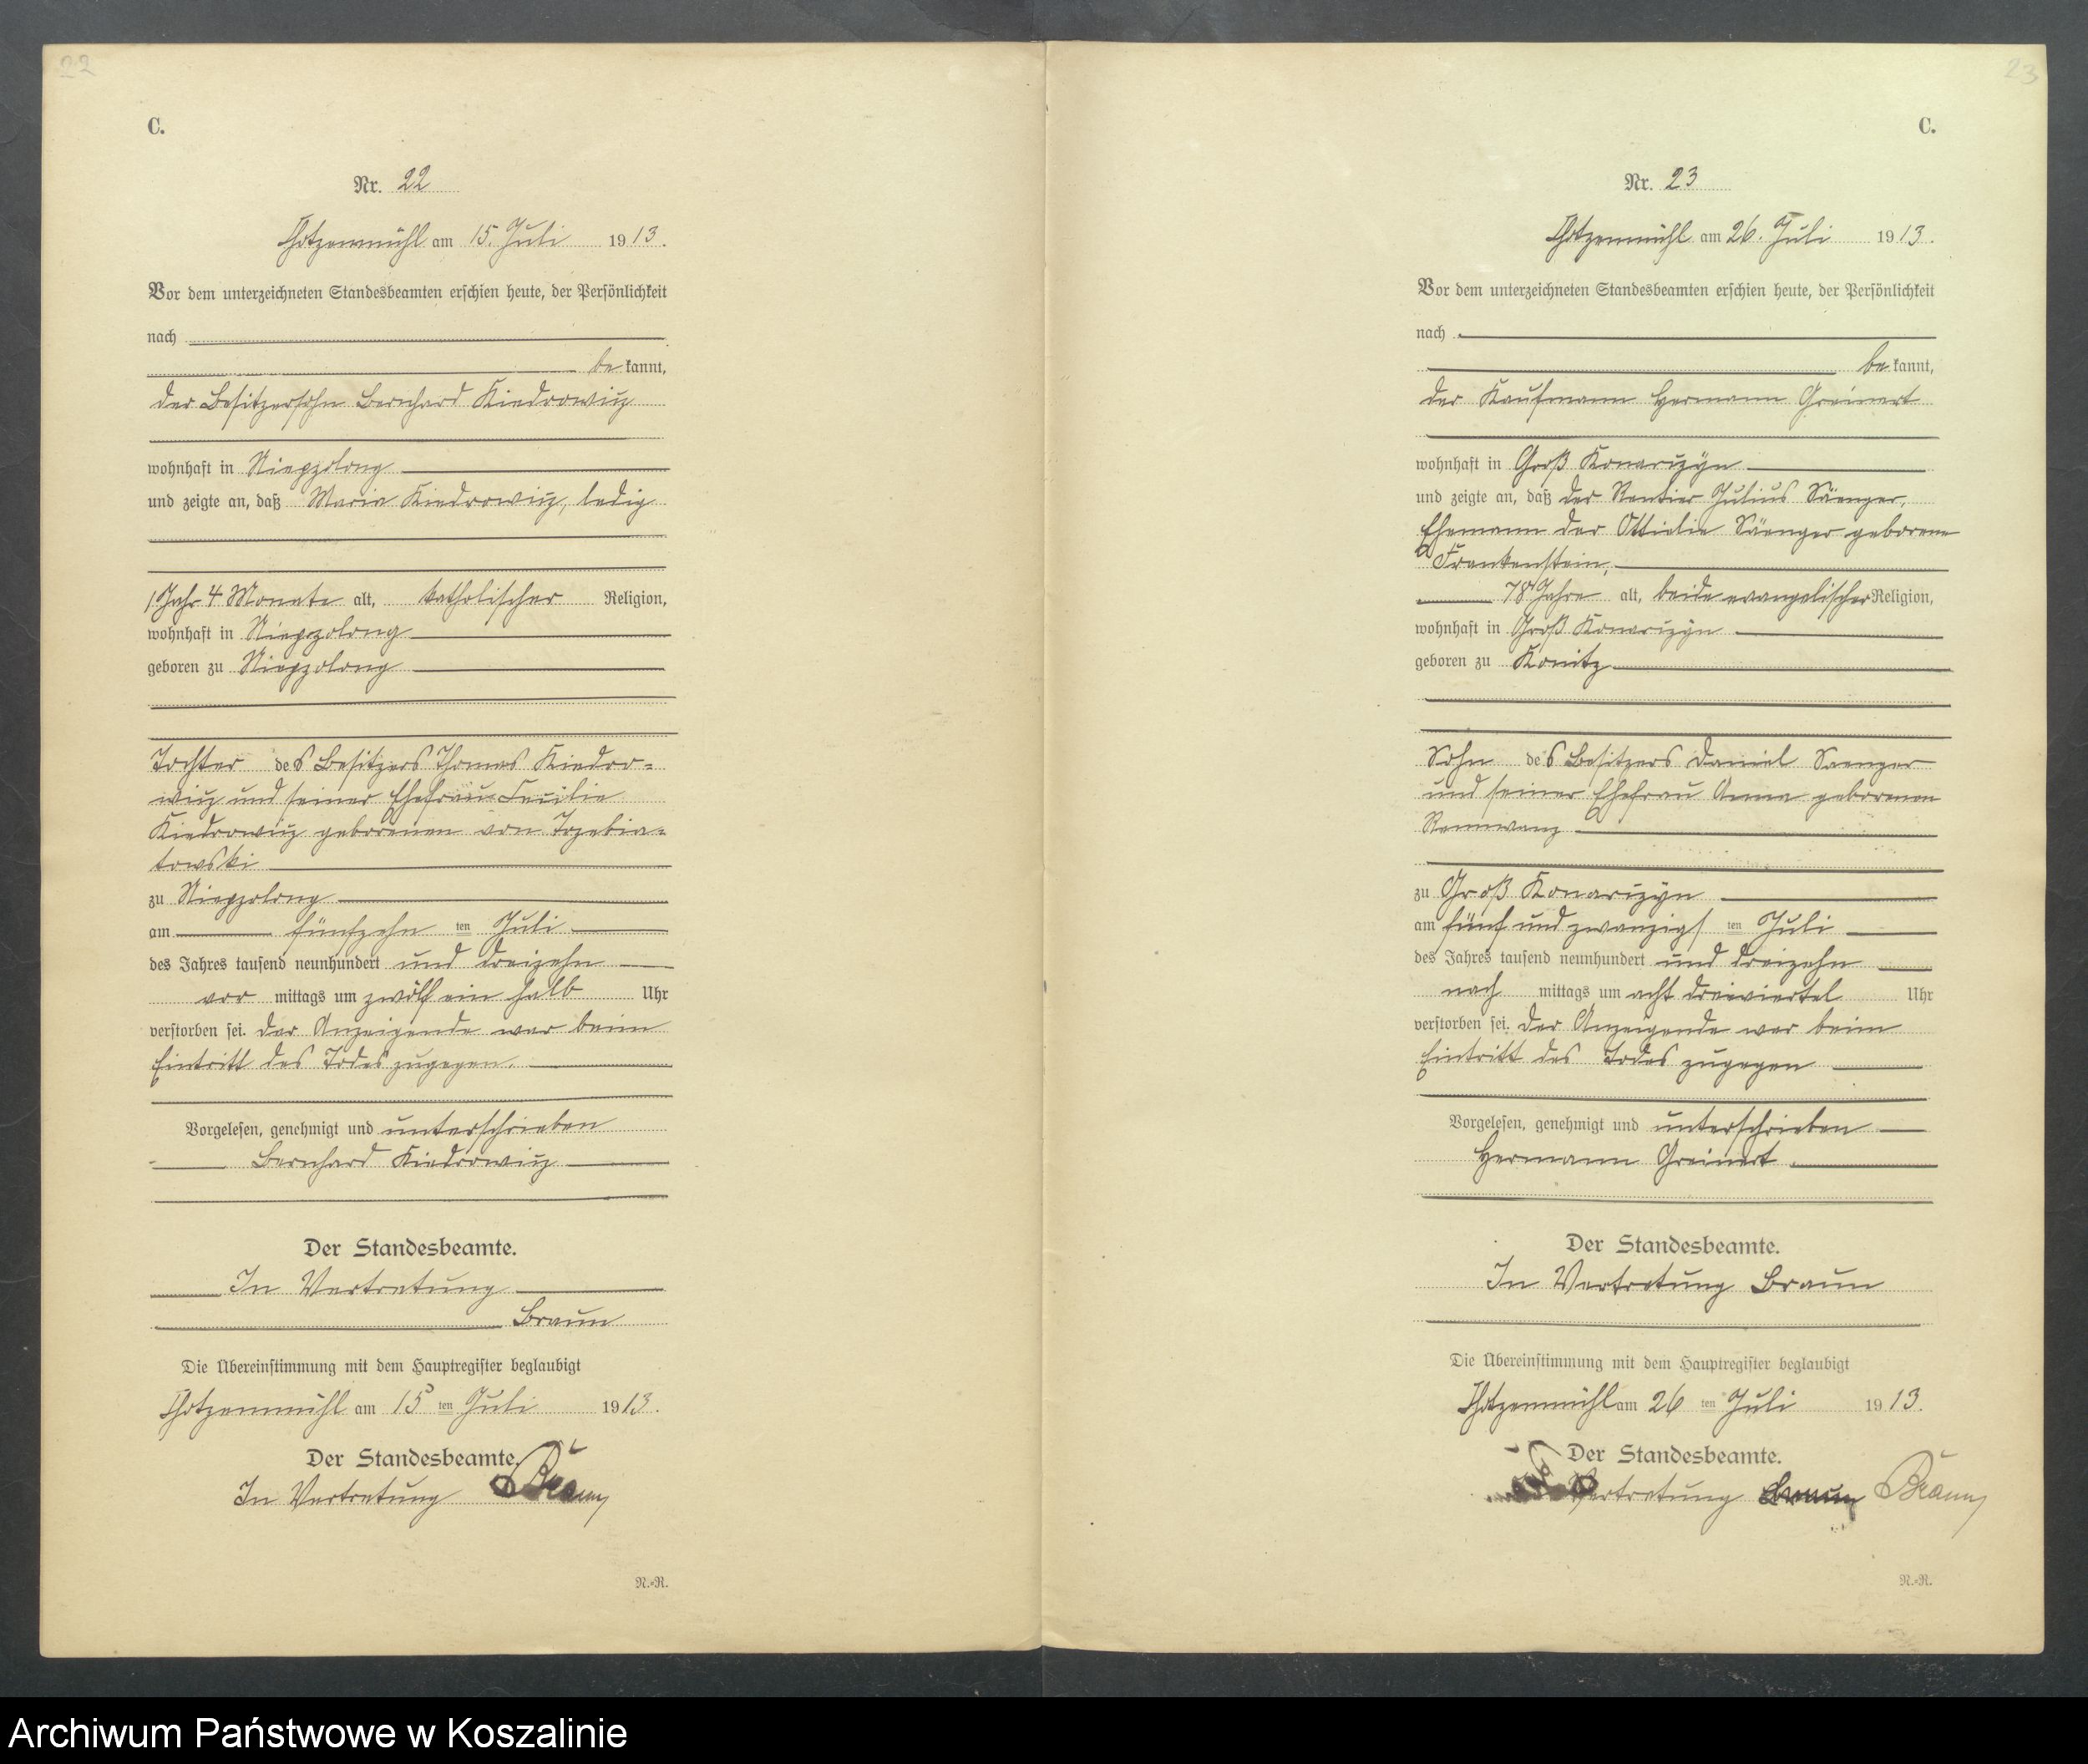 22
C.
Nr. 22
Thotzenmühl am 15. Juli 1913.
Vor dem unterzeichneten Standesbeamten erschien heute, der Persönlichkeit
nach
bekannt,
der Besitzersohn Bernhard Kiedrowicz
wohnhaft in
und zeigte an, daß Maria Kiedrowicz, ledig
1 Jahr 4 Monate alt, katholischer Religion,
wohnhaft in
geboren zu
Tochter des Besitzers Thomas Kiedro-
wicz und seiner Ehefrau Cecilie
Kiedrowicz geborenen von Trzebia-
towski
zu
am fünfzehn ten Juli
des Jahres tausend neunhundert und dreizehn
vor mittags um zwölf ein halb Uhr
verstorben sei. Der Anzeigende war beim
Eintritt des Todes zugegen.
Vorgelesen, genehmigt und unterschrieben
Bernhard Kiedrowicz
Der Standesbeamte.
In Vertretung
Braun
Die Übereinstimmung mit dem Hauptregister beglaubigt
Thotzenmühl am 15 ten Juli 1913.
Der Standesbeamte.
In Vertretung Braun
N.=R.
23
C.
Nr. 23
Thotzenmühl am 26. Juli 1913.
Vor dem unterzeichneten Standesbeamten erschien heute, der Persönlichkeit
nach
bekannt,
der Kaufmann Hermann Greinert
wohnhaft in Groß Konarczyn
und zeigte an, daß der Rentier Julius Säenger,
Ehemann der Ottielie Säenger geborene
Frankenstein,
78 Jahre alt, beide evangelischer Religion,
wohnhaft in Groß Konarczyn
geboren zu Konitz
Sohn des Besitzers Daniel Saenger
und seiner Ehefrau Anna geborenen
Rennwanz
zu Groß Konarczyn
am fünf und zwanzigs ten Juli
des Jahres tausend neunhundert und dreizehn
nach mittags um acht dreiviertel Uhr
verstorben sei. Der Anzeigende war beim
Eintritt des Todes zugegen
Vorgelesen, genehmigt und unterschrieben
Hermann Greinert.
Der Standesbeamte.
In Vertretung Braun
Die Übereinstimmung mit dem Hauptregister beglaubigt
Thotzenmühl am 26 ten Juli 1913.
Der Standesbeamte.
Vertretung Braun Braun
N.=R.
Archiwum Państwowe w Koszalinie